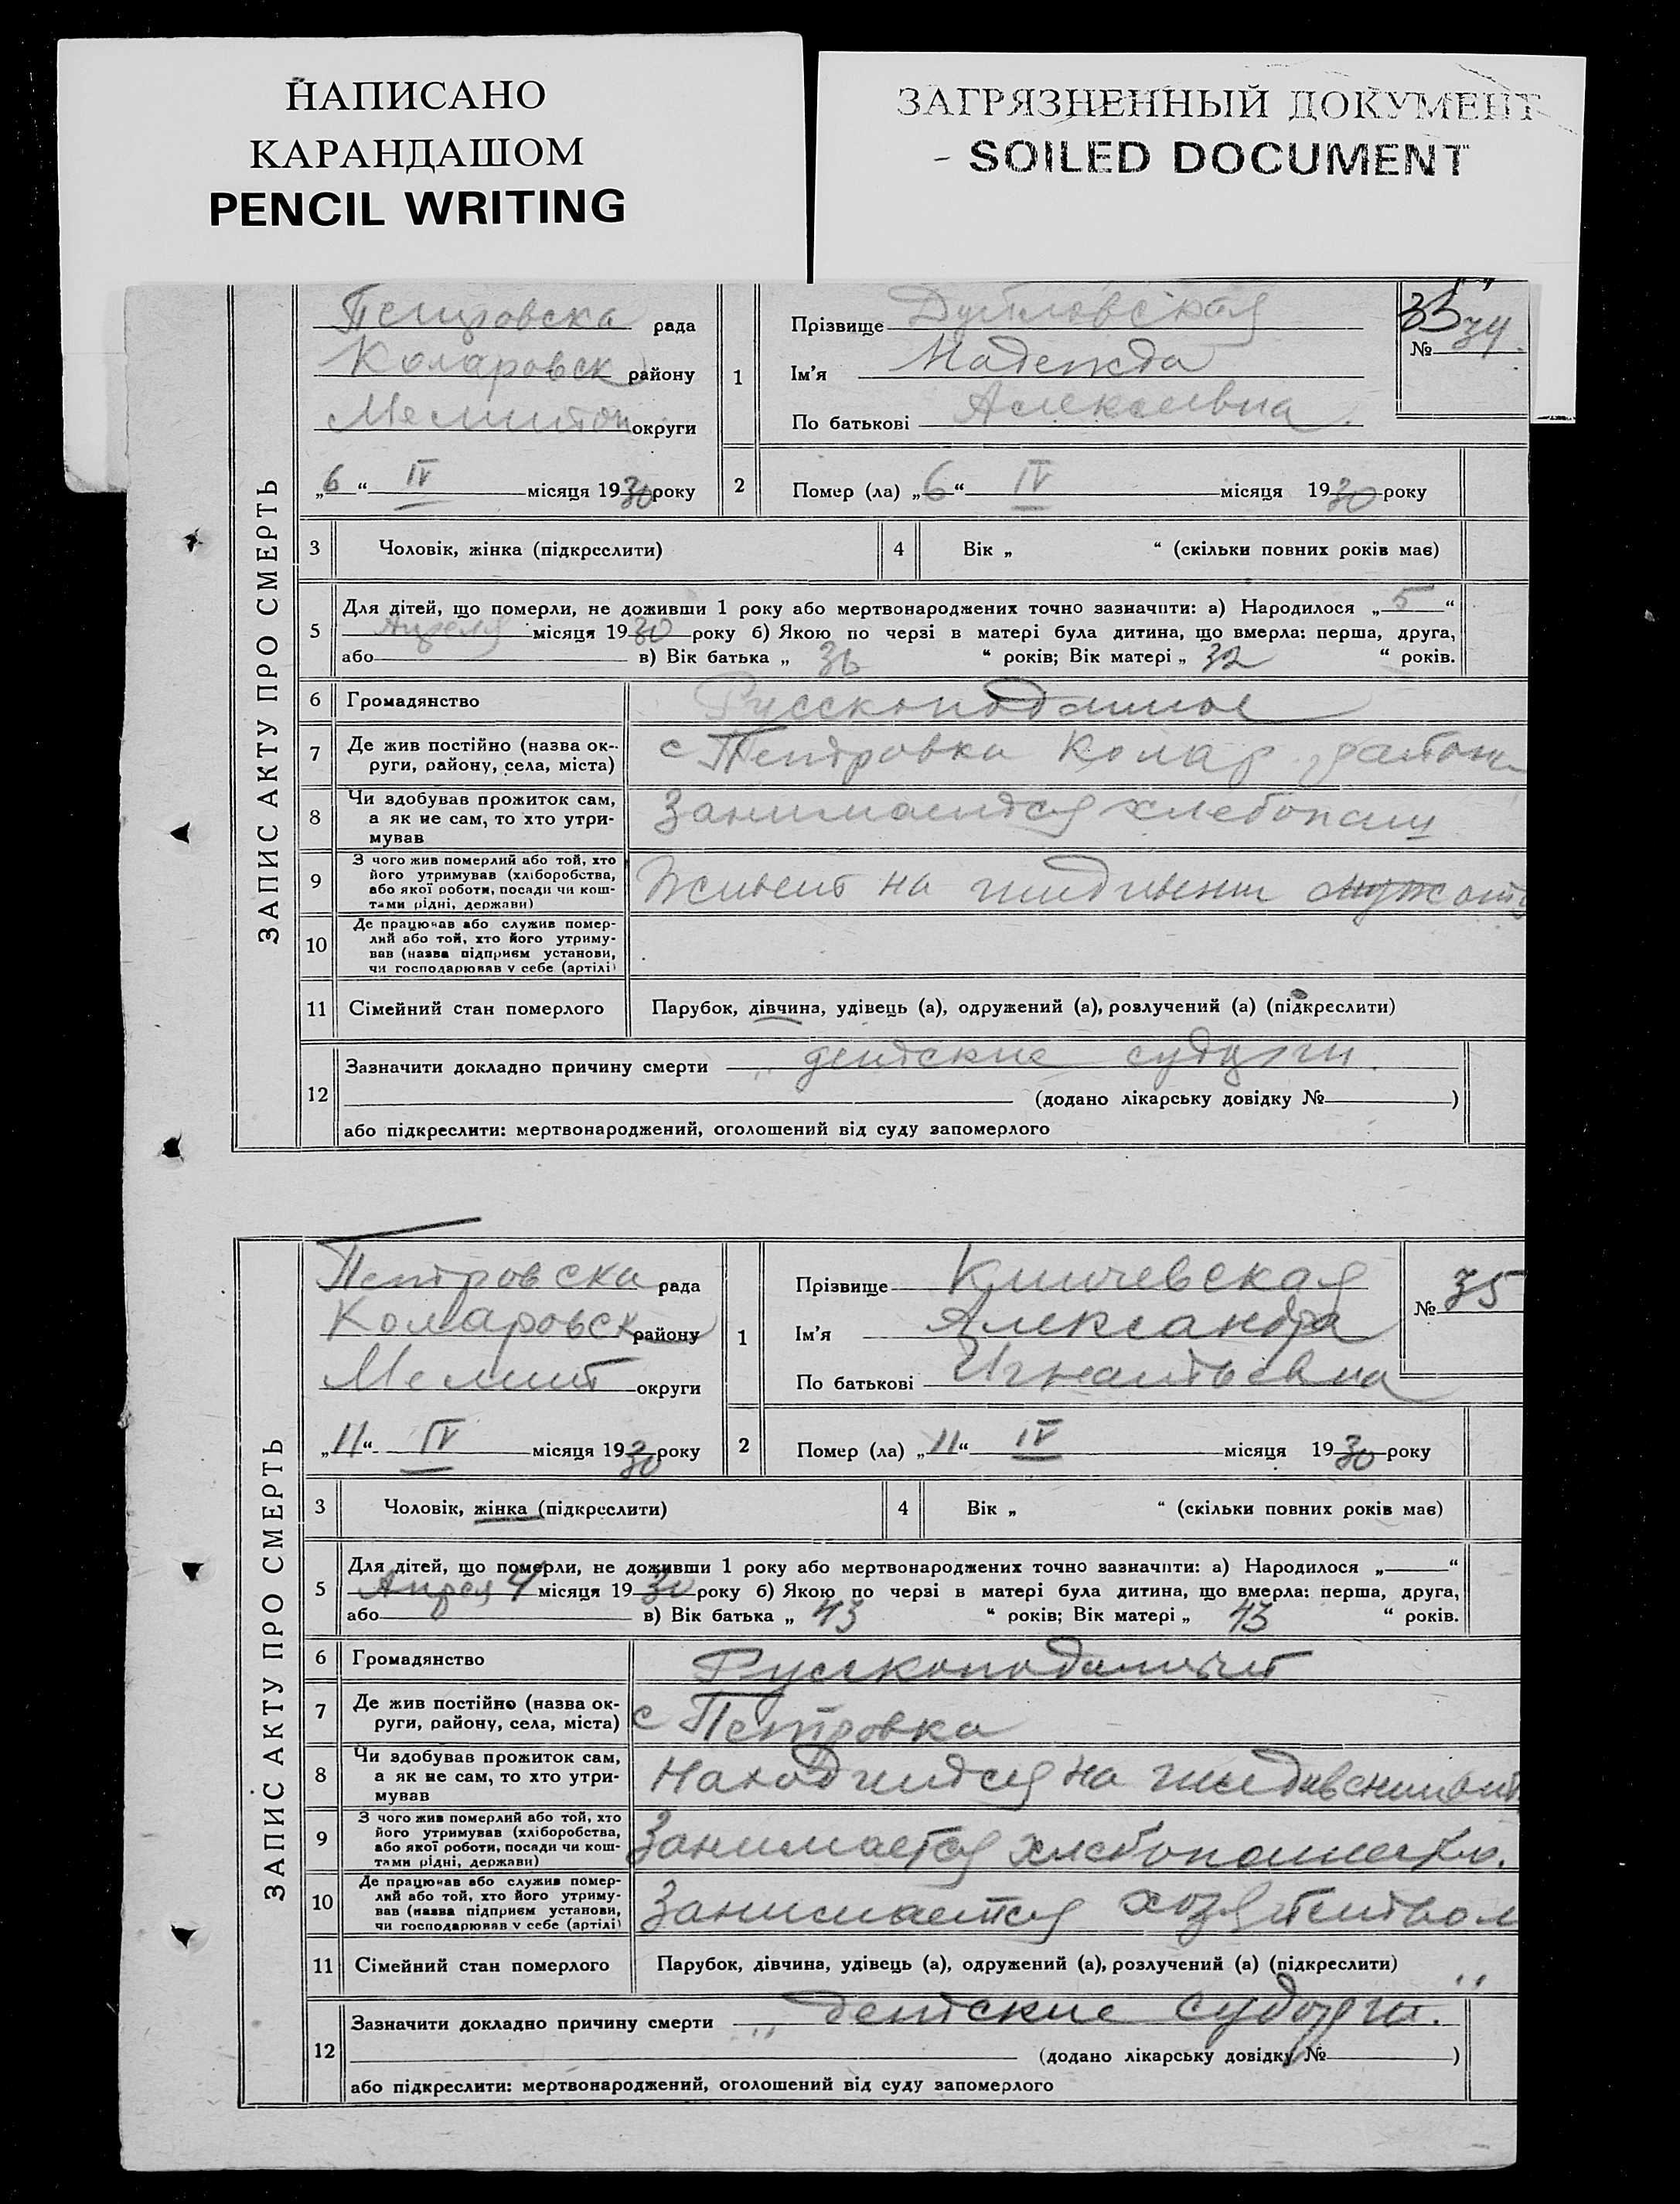 НАПИСАНО
КАРАНДАШОМ
PENCIL WRITING
ЗАГРЯЗНЕННЫЙ ДОКУМЕНТ
- SOILED DOCUMENT
ЗАПИС АКТУ ПРО СМЕРТЬ
Петровска рада
Коларовск району
Мелитоп округи
„6“ IV місяця 1930 року
1
Прізвище
Ім'я Надежда
По батькові Алексеевна
№ 34
2 Помер (ла) „6“ IV місяця 1930 року
3 Чоловік, жінка (підкреслити)
4 Вік „ “ (скільки повних років має)
5 Для дітей, що померли, не доживши 1 року або мертвонароджених точно зазначити: а) Народилося „5“
Апреля місяця 1930 року б) Якою по черзі в матері була дитина, що вмерла: перша, друга,
або в) Вік батька „36 “ років; Вік матері „32 “ років.
6 Громадянство Русскоподаное
7 Де жив постійно (назва ок-
руги, району, села, міста) с Петровка Колар
8 Чи здобував прожиток сам,
а як не сам, то хто утри-
мував Занимается хлебопаш
9 З чого жив померлий або той, хто
його утримував (хліборобства,
або якої роботи, посади чи кош-
тами рідні, держави) Живет на
10 Де працював або служив помер-
лий або той, хто його утриму-
вав (назва підприєм установи,
чи господарював у себе (артілі)
11 Сімейний стан померлого Парубок, дівчина, удівець (а), одружений (а), розлучений (а) (підкреслити)
12 Зазначити докладно причину смерти детские судорги.
(додано лікарську довідку № )
або підкреслити: мертвонароджений, оголошений від суду запомерлого
ЗАПИС АКТУ ПРО СМЕРТЬ
Петровска рада
Коларовск району
Мелит округи
„11“ IV місяця 1930 року
1
Прізвище Климчевская
Ім'я Александра
По батькові Игнатьевна
№ 35
2 Помер (ла) „11“ IV місяця 1930 року
3 Чоловік, жінка (підкреслити)
4 Вік „ “ (скільки повних років має)
5 Для дітей, що померли, не доживши 1 року або мертвонароджених точно зазначити: а) Народилося „ “
Апреля 4 місяця 1930 року б) Якою по черзі в матері була дитина, що вмерла: перша, друга,
або в) Вік батька „43 “ років; Вік матері „43 “ років.
6 Громадянство
7 Де жив постійно (назва ок-
руги, району, села, міста) с Петровка
8 Чи здобував прожиток сам,
а як не сам, то хто утри-
мував Находится на
9 З чого жив померлий або той, хто
його утримував (хліборобства,
або якої роботи, посади чи кош-
тами рідні, держави) Занимается
10 Де працював або служив помер-
лий або той, хто його утриму-
вав (назва підприєм установи,
чи господарював у себе (артілі) Занимается
11 Сімейний стан померлого Парубок, дівчина, удівець (а), одружений (а), розлучений (а) (підкреслити)
12 Зазначити докладно причину смерти детские судорги.
(додано лікарську довідку № )
або підкреслити: мертвонароджений, оголошений від суду запомерлого